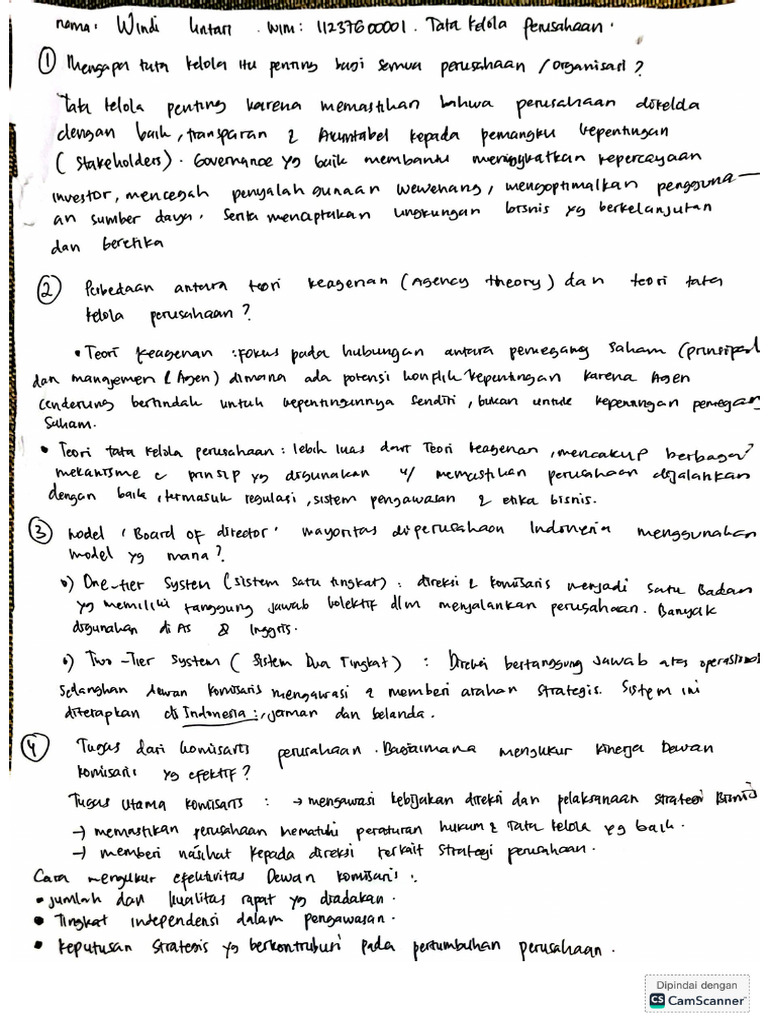 nama: Windi Untari . NIM: 11237600001 . Tata kelola perusahaan .
① Mengapa tata kelola itu penting bagi semua perusahaan / organisasi ?
Tata kelola penting karena memastikan bahwa perusahaan dikelola
dengan baik, transparan & Akuntabel kepada pemangku kepentingan
(Stakeholders). Governance yg baik membantu meningkatkan kepercayaan
investor, mencegah penyalah gunaan wewenang, mengoptimalkan pengguna-
an sumber daya, Serta menciptakan lingkungan bisnis yg berkelanjutan
dan beretika
② Perbedaan antara teori keagenan (Agency theory) dan teori tata
kelola perusahaan ?
• Teori keagenan : fokus pada hubungan antara pemegang saham (prinsipal
dan manajemen (Agen) dimana ada potensi konflik kepentingan karena Agen
cenderung bertindak untuk kepentingannya sendiri, bukan untuk kepentingan pemegang
Saham.
• Teori tata kelola perusahaan : lebih luas dari Teori keagenan, mencakup berbagai
mekanisme & prinsip yg digunakan u/ memastikan perusahaan dijalankan
dengan baik, termasuk regulasi, sistem pengawasan & etika bisnis.
③ Model 'Board of director' mayoritas diperusahaan Indonesia menggunakan
model yg mana ?
•) One-tier System (sistem satu tingkat) : direksi & komisaris menjadi satu Badan
yg memiliki tanggung jawab kolektif dlm menjalankan perusahaan. Banyak
digunakan di AS & Inggris.
•) Two-Tier System ( Sistem Dua Tingkat) : Direksi bertanggung jawab atas operasional
Sedangkan dewan komisaris mengawasi & memberi arahan strategis. Sistem ini
diterapkan di Indonesia :, jerman dan belanda.
④ Tugas dari komisaris perusahaan . Bagaimana mengukur kinerja Dewan
komisaris yg efektif ?
Tugas Utama komisaris : → mengawasi kebijakan direksi dan pelaksanaan strategi Bisnis
→ memastikan perusahaan mematuhi peraturan hukum & Tata kelola yg baik.
→ memberi nasihat kepada direksi terkait strategi perusahaan.
Cara mengukur efektivitas Dewan komisaris :
• jumlah dan kualitas rapat yg diadakan.
• Tingkat independensi dalam pengawasan.
• keputusan strategis yg berkontribusi pada pertumbuhan perusahaan .
Dipindai dengan
CS CamScanner